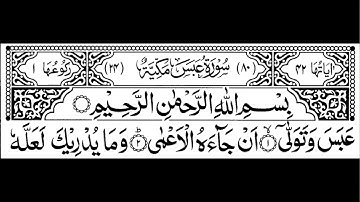 اٰيَاتُهَا ٤٢ (٨٠) سُوْرَةُ عَبَسَ مَكِّيَّةٌ (٢٤) رُكُوْعُهَا ١
بِسْمِ اللّٰهِ الرَّحْمٰنِ الرَّحِيْمِ
عَبَسَ وَتَوَلّٰىٓ ۙ‏﴿۱﴾ اَنْ جَآءَهُ الْاَعْمٰىؕ‏ ﴿۲﴾ وَمَا يُدْرِيْكَ لَعَلَّهٗ